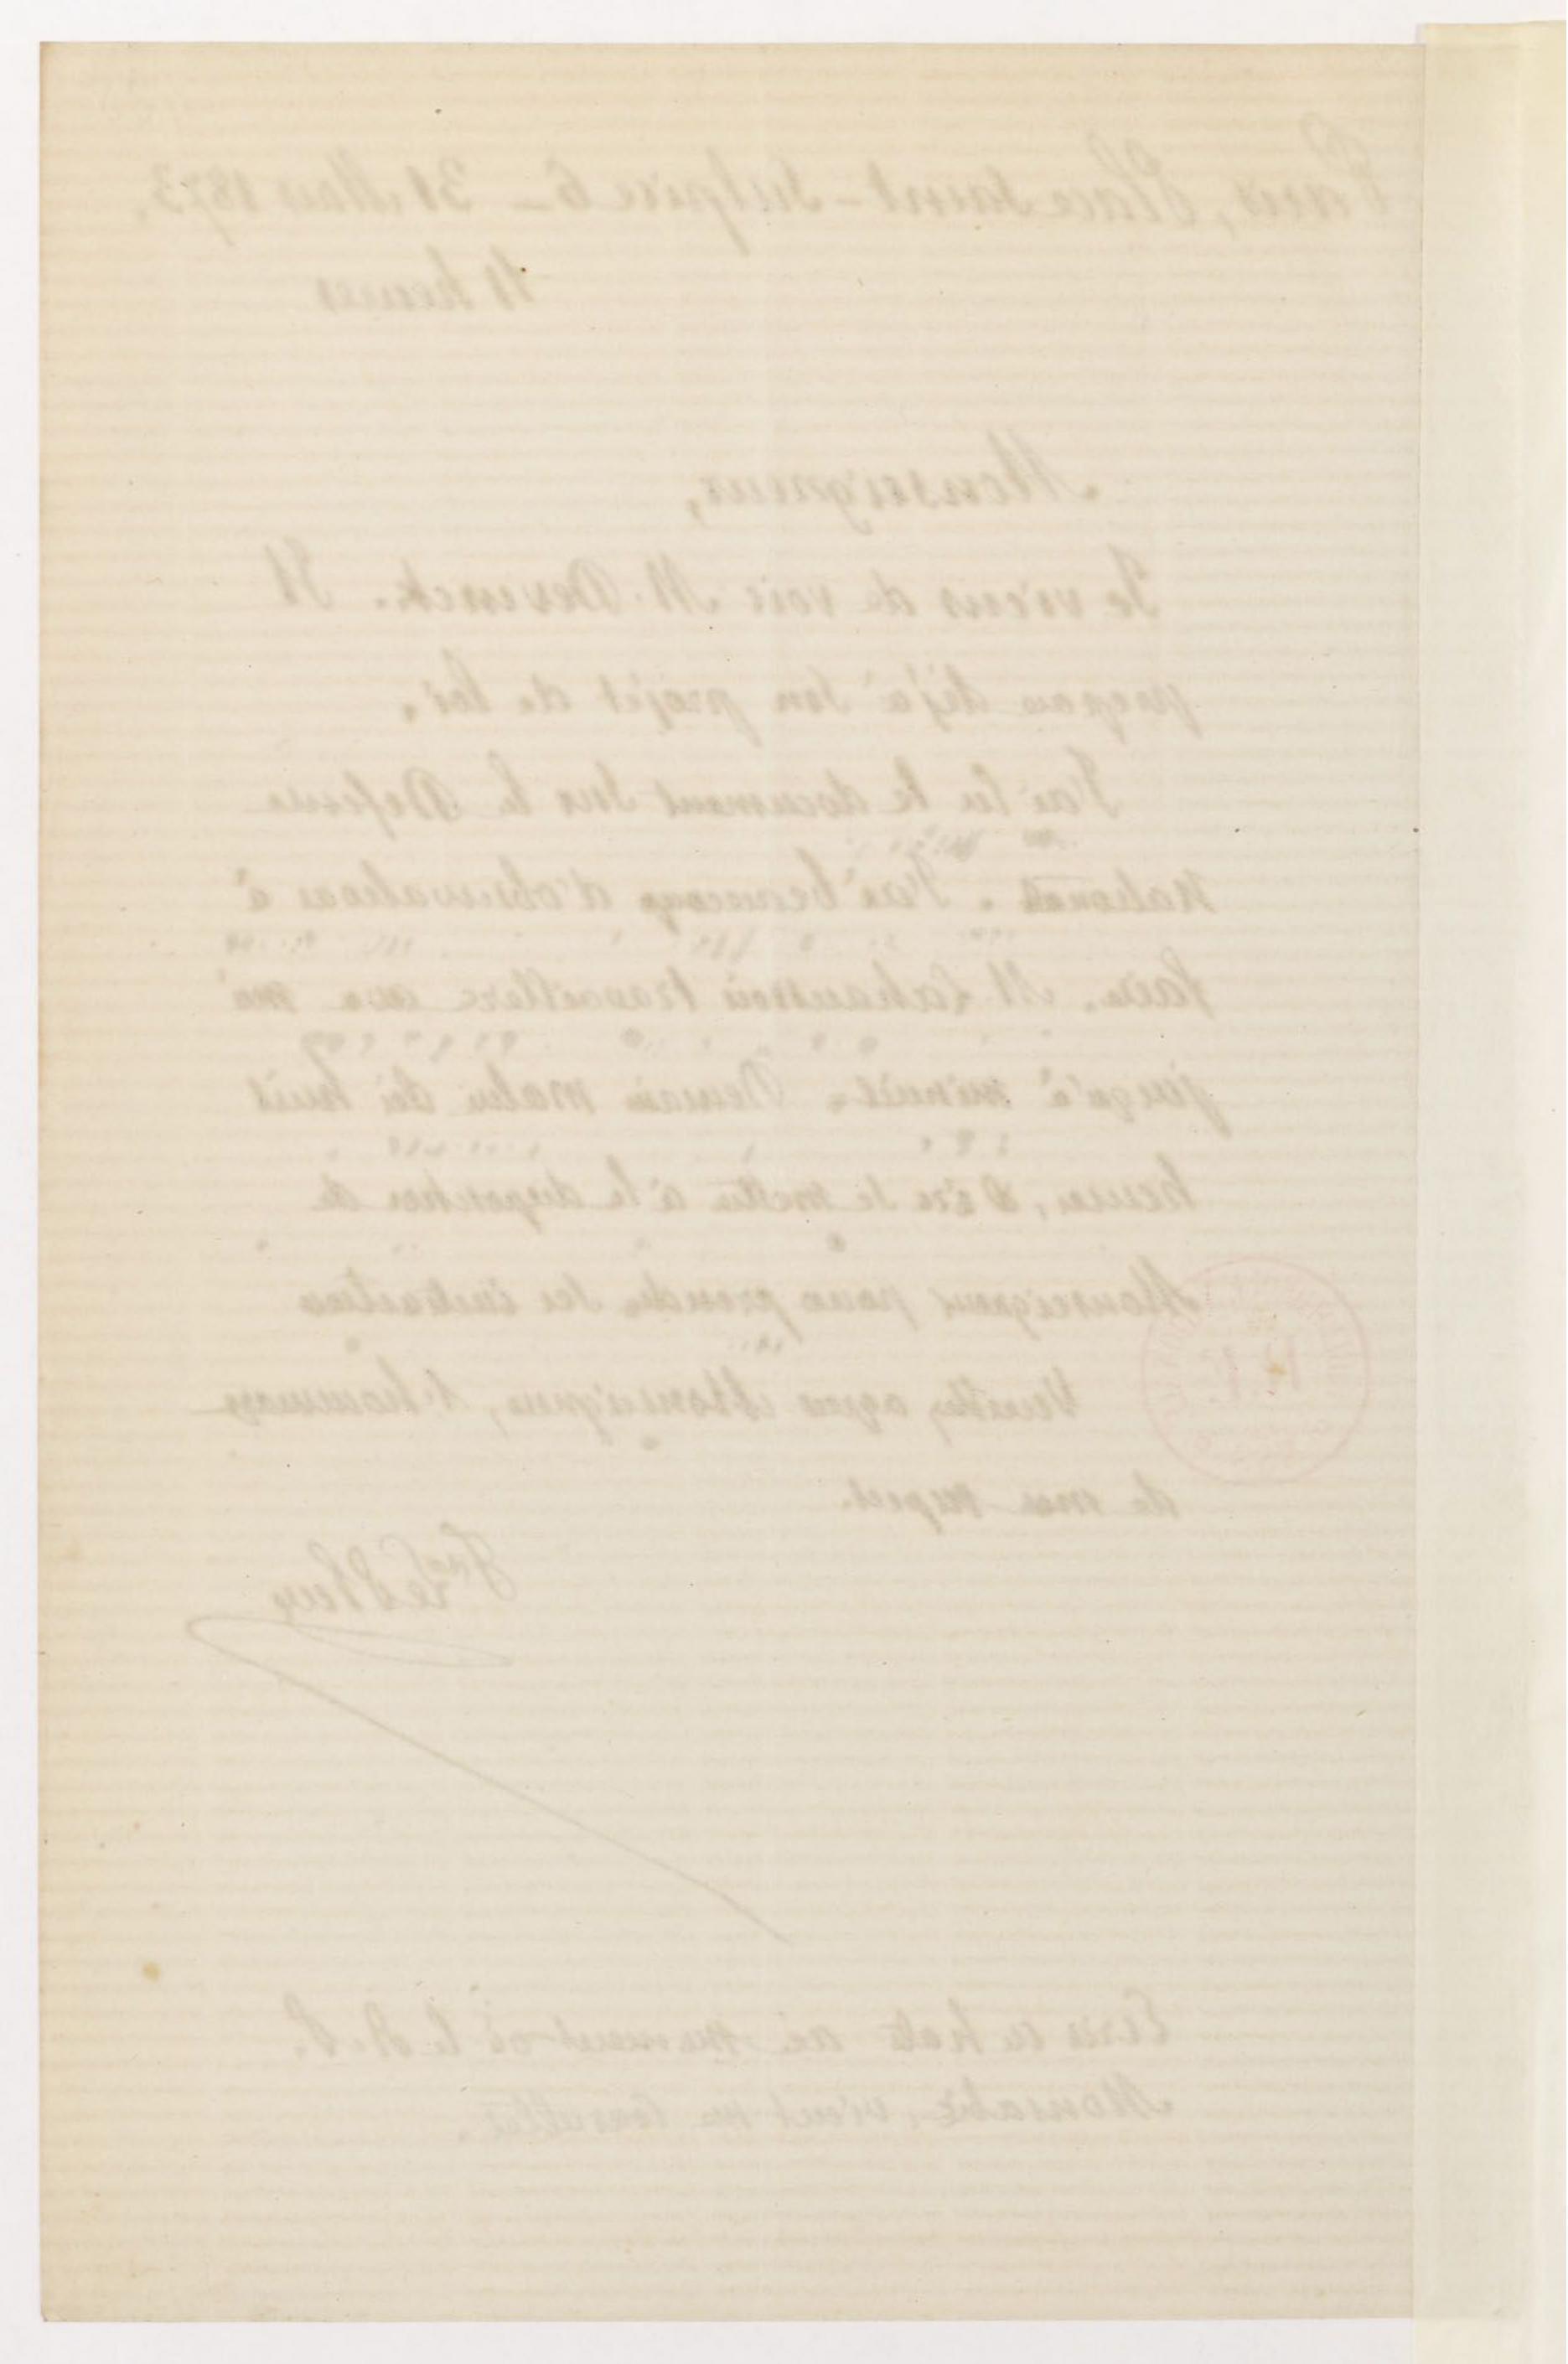 Paris, Place Saint-Sulpice 6 - 31 Mars 1873.
11 heures
Monseigneur,
Je viens de voir M. Devinck. Il
prépare déjà son projet de loi.
J'ai lu le document sur la Défense
Nationale. J'ai beaucoup d'observations à
faire. M. travaillera avec moi
jusqu'à minuit. Demain matin dès huit
heures, se mettra à la disposition de
Monseigneur pour prendre ses instructions
Veuillez agréer Monseigneur, l'hommage
de mon respect.
Ecrit en hâte au moment où le R. P.
Monsabré vient me consulter.